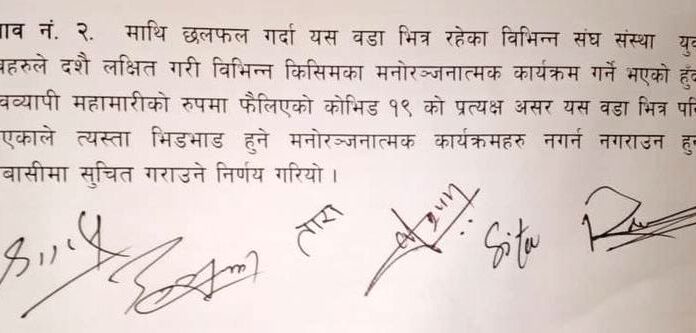 नं. २. माथि छलफल गर्दा यस वडा भित्र रहेका विभिन्न संघ संस्था
लक्षित गरी विभिन्न किसिमका मनोरञ्जनात्मक कार्यक्रम गर्ने भएको
महामारीको रुपमा फैलिएको कोभिड १९ को प्रत्यक्ष असर यस वडा भित्र
त्यस्ता भिडभाड हुने मनोरञ्जनात्मक कार्यक्रमहरु नगर्न नगराउन
सुचित गराउने निर्णय गरियो ।
तारा
Sita